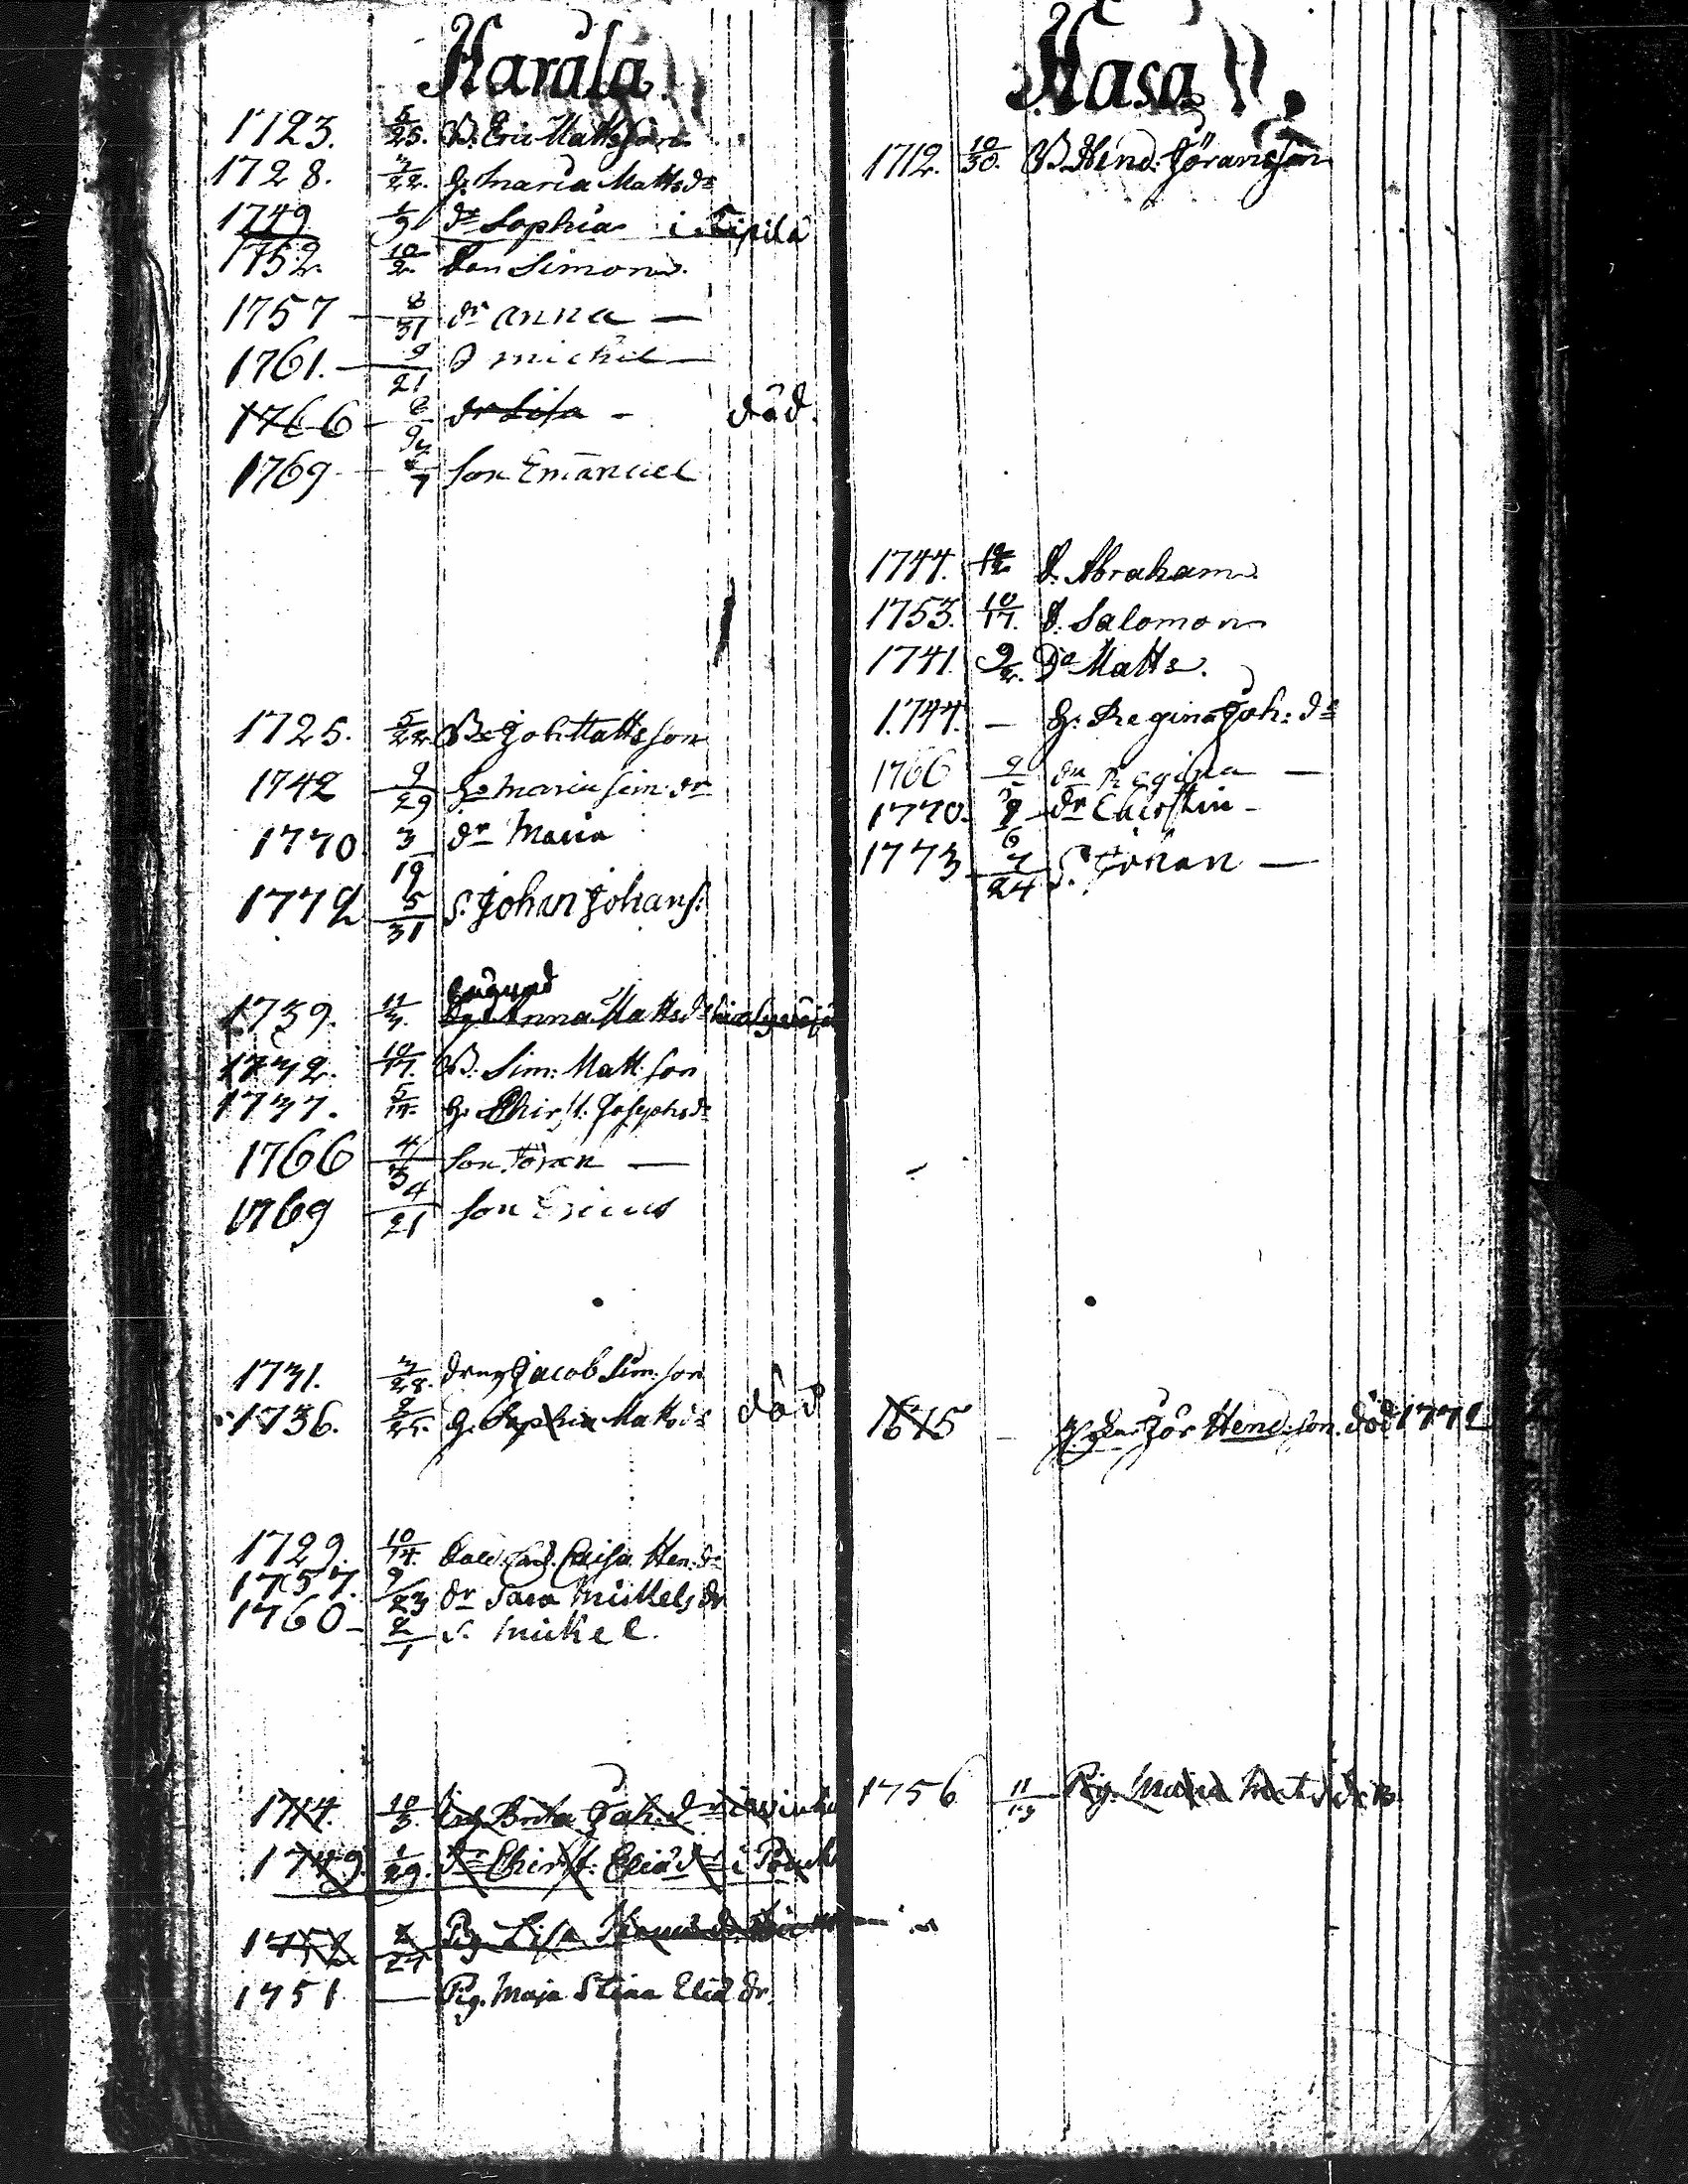 Harala
1723. 5/25. B. Eric Mattsson
1728. 3/22. H. Maria Matts dr
1749 1/9 dr Sophia i Tipila
1752. 10/2. Son Simon
1757 — 8/31 dr anna —
1761. — 9/21 S michel —
1766 - dr Lisa - död.
1769 - 7 son Emanuel
1725. 5/22. B. Joh Mattsson
1742 9/29 H. Maria Sim: dr
1770 3/19 dr Maria
1772 5/31 S. Johan Johans:
1739. 11/3. Anna Matts dr
1732. 10/17. B. Sim: Matt. son
1737. 5/14. H. Christ. Josephs dr
1766 4/3 son Jöran —
1769 4/21 son Ericus
1731. 3/28. dreng Jacob Sim. son
1736. 2/25. H. Sophia Matts dr död
1729. 10/14. Caisa Hen: dr
1757. 9/23 dr Sara Mickels dr
1760 - 2/1 S. Mickel.
1714. 10/3. Brita Joh: dr
1749. 1/29. dr Christ: Elia dr i
27 Pig. Lisa
1751 — Pig. Maja Stina Elia dr.
Hasa
1712. 10/30. B. Hend: Jöransson
1744. S. Abraham
1753. 10/17. S. Salomon
1741. 9/2. Do Matts.
1744. — H. Regina Joh: dr
1766 dr Regina —
1770. dr Chirstin -
1773 7/24 S. Jöran —
1675 — Jör Hend: son. död 1772
1756 11/19 Pig. Maria Mats dr